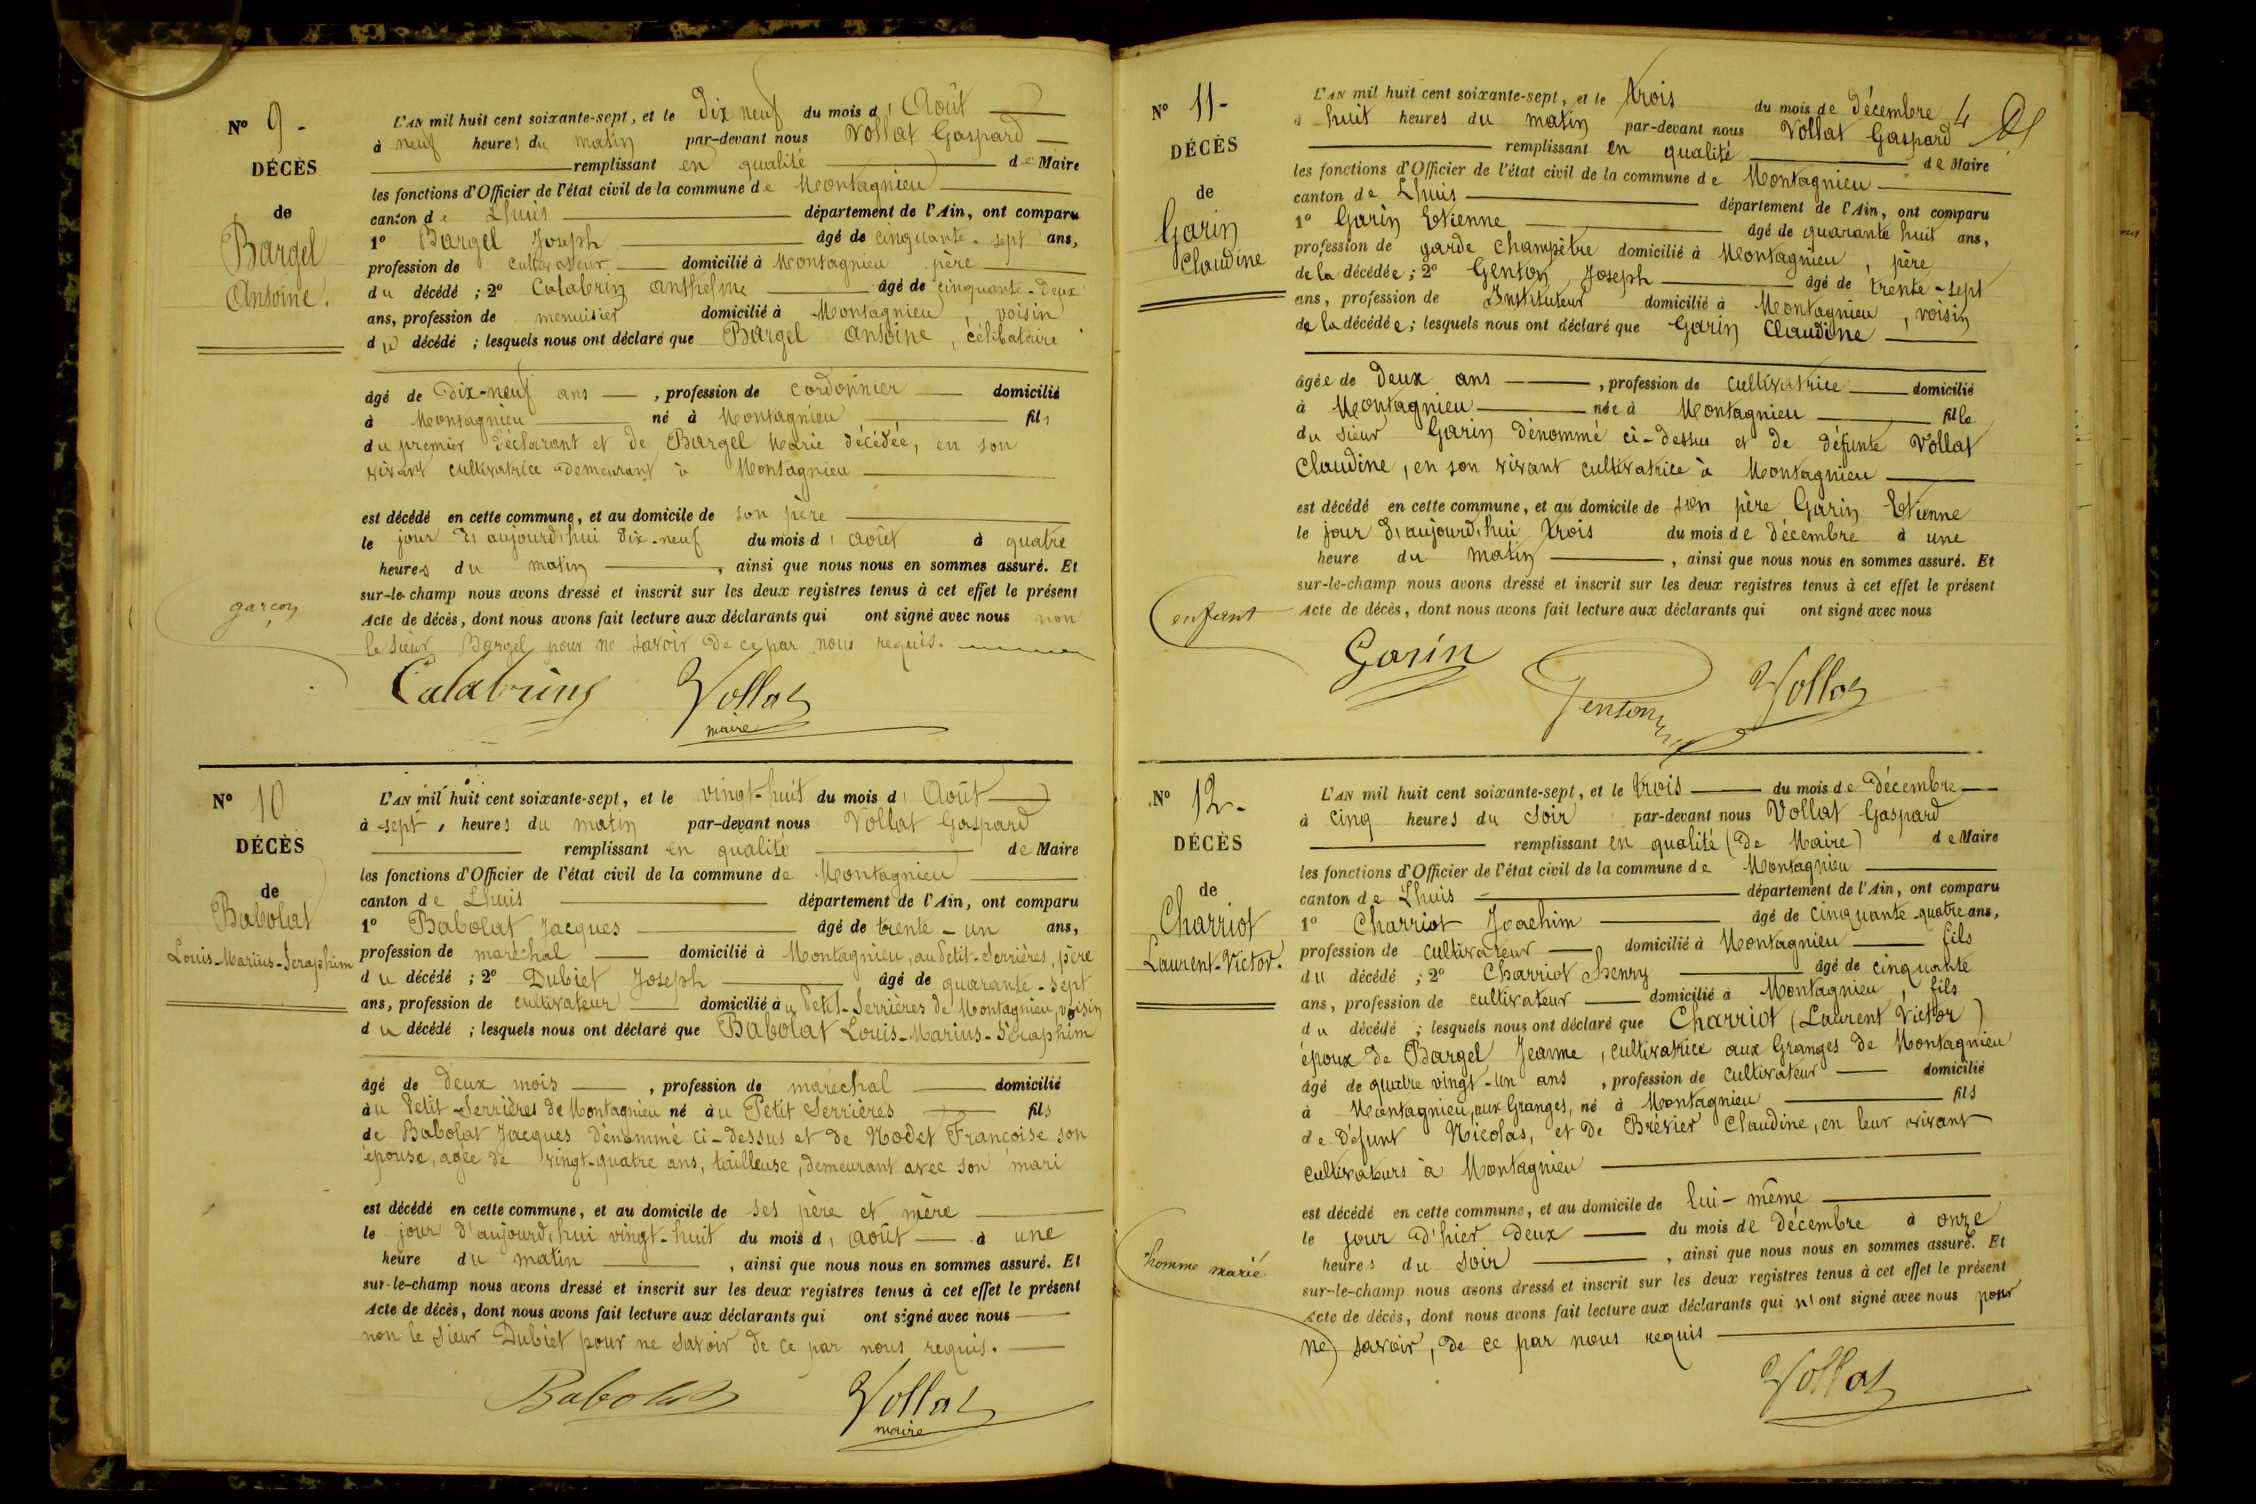 N° 9 -
DÉCÈS
de
Bargel
Antoine.
L'AN mil huit cent soixante-sept, et le dix neuf du mois d' Août
à neuf heures du matin par-devant nous Vollat Gaspard
remplissant en qualité de Maire
les fonctions d'Officier de l'état civil de la commune de Montagnieu
canton de Lhuis département de l'Ain, ont comparu
1° Bargel Joseph âgé de cinquante-sept ans,
profession de cultivateur domicilié à Montagnieu père
du décédé ; 2° Calabrin Anthelme âgé de cinquante-deux
ans, profession de menuisier domicilié à Montagnieu, voisin
du décédé ; lesquels nous ont déclaré que Bargel Antoine, célibataire
âgé de dix-neuf ans, profession de cordonnier domicilié
à Montagnieu né à Montagnieu fils
du premier déclarant et de Bargel Marie décédée, en son
vivant cultivatrice demeurant à Montagnieu
est décédé en cette commune, et au domicile de son père
le jour d'aujourd'hui dix-neuf du mois d' août à quatre
heures du matin, ainsi que nous nous en sommes assuré. Et
sur-le-champ nous avons dressé et inscrit sur les deux registres tenus à cet effet le présent
Acte de décès, dont nous avons fait lecture aux déclarants qui ont signé avec nous non
le sieur Bargel pour ne savoir de ce par nous requis.
garçon
Calabrin Vollat
maire
N° 10
DÉCÈS
de
Babolat
Louis-Marius-Seraphim
L'AN mil huit cent soixante-sept, et le vingt-huit du mois d' Août
à sept heures du matin par-devant nous Vollat Gaspard
remplissant en qualité de Maire
les fonctions d'Officier de l'état civil de la commune de Montagnieu
canton de Lhuis département de l'Ain, ont comparu
1° Babolat Jacques âgé de trente-un ans,
profession de maréchal domicilié à Montagnieu, au Petit-Serrières, père
du décédé ; 2° Dubiet Joseph âgé de quarante-sept
ans, profession de cultivateur domicilié au Petit-Serrières de Montagnieu, voisin
du décédé ; lesquels nous ont déclaré que Babolat Louis-Marius-Séraphim
âgé de deux mois, profession de maréchal domicilié
au Petit-Serrières de Montagnieu né au Petit Serrières fils
de Babolat Jacques dénommé ci-dessus et de Nodet Françoise son
épouse, agée de vingt-quatre ans, tailleuse, demeurant avec son mari
est décédé en cette commune, et au domicile de ses père et mère
le jour d'aujourd'hui vingt-huit du mois d' août à une
heure du matin, ainsi que nous nous en sommes assuré. Et
sur-le-champ nous avons dressé et inscrit sur les deux registres tenus à cet effet le présent
Acte de décès, dont nous avons fait lecture aux déclarants qui ont signé avec nous
non le sieur Dubiet pour ne savoir de ce par nous requis.
Babolat Vollat
maire
N° 11 -
DÉCÈS
de
Garin
Claudine
L'AN mil huit cent soixante-sept, et le trois du mois de décembre 4
à huit heures du matin par-devant nous Vollat Gaspard
remplissant en qualité de Maire
les fonctions d'Officier de l'état civil de la commune de Montagnieu
canton de Lhuis département de l'Ain, ont comparu
1° Garin Etienne âgé de quarante huit ans,
profession de garde champêtre domicilié à Montagnieu, père
de la décédée ; 2° Genton Joseph âgé de trente-sept
ans, profession de Instituteur domicilié à Montagnieu, voisin
de la décédée ; lesquels nous ont déclaré que Garin Claudine
âgée de deux ans, profession de cultivatrice domicilié
à Montagnieu née à Montagnieu fille
du sieur Garin dénommé ci-dessus et de défunte Vollat
Claudine, en son vivant cultivatrice à Montagnieu
est décédé en cette commune, et au domicile de son père Garin Etienne
le jour d'aujourd'hui trois du mois de décembre à une
heure du matin, ainsi que nous nous en sommes assuré. Et
sur-le-champ nous avons dressé et inscrit sur les deux registres tenus à cet effet le présent
Acte de décès, dont nous avons fait lecture aux déclarants qui ont signé avec nous
enfant
Garin Genton Vollat
N° 12 -
DÉCÈS
de
Charriot
Laurent-Victor.
L'AN mil huit cent soixante-sept, et le trois du mois de décembre
à cinq heures du soir par-devant nous Vollat Gaspard
remplissant en qualité (de Maire) de Maire
les fonctions d'Officier de l'état civil de la commune de Montagnieu
canton de Lhuis département de l'Ain, ont comparu
1° Charriot Joachim âgé de cinquante-quatre ans,
profession de cultivateur domicilié à Montagnieu fils
du décédé ; 2° Charriot henry âgé de cinquante
ans, profession de cultivateur domicilié à Montagnieu, fils
du décédé ; lesquels nous ont déclaré que Charriot (Laurent Victor)
époux de Bargel Jeanne, cultivatrice aux Granges de Montagnieu
âgé de quatre vingt-un ans, profession de cultivateur domicilié
à Montagnieu, aux Granges, né à Montagnieu fils
de défunt Nicolas, et de Brévier Claudine, en leur vivant
cultivateurs à Montagnieu
est décédé en cette commune, et au domicile de lui-même
le jour d'hier deux du mois de décembre à onze
heures du soir, ainsi que nous nous en sommes assuré. Et
sur-le-champ nous avons dressé et inscrit sur les deux registres tenus à cet effet le présent
Acte de décès, dont nous avons fait lecture aux déclarants qui n'ont signé avec nous pour
ne savoir, de ce par nous requis
homme marié
Vollat